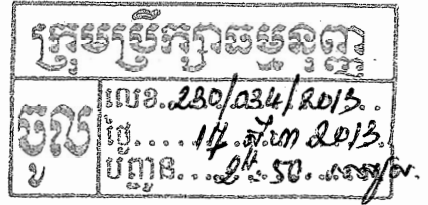 ក្រុមប្រឹក្សាធម្មនុញ្ញ
ចូល
លេខ. 230/034/2013. .
ថ្ងៃ. . . . . 17. សីហា 2013.
បញ្ជូន. . .